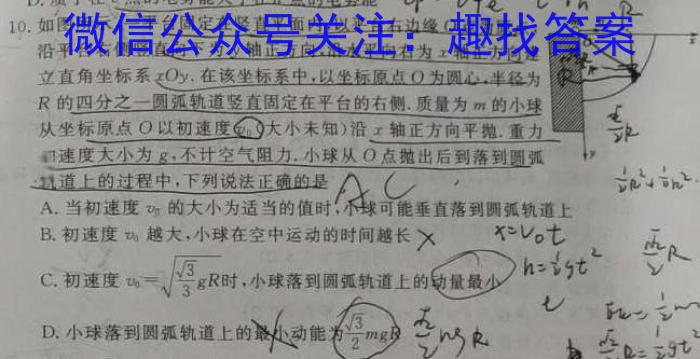 10. 如图
平台固定在竖直平面
右边缘
微信公众号关注：趣找答案
沿平
立直角坐标系 xOy. 在该坐标系中, 以坐标原点 O 为圆心, 半径为
R 的四分之一圆弧轨道竖直固定在平台的右侧. 质量为 m 的小球
从坐标原点 O 以初速度 v₀ (大小未知) 沿 x 轴正方向平抛. 重力
速度大小为 g, 不计空气阻力. 小球从 O 点抛出后到落到圆弧
道上的过程中, 下列说法正确的是 A C
A. 当初速度 v₀ 的大小为适当的值时, 小球可能垂直落到圆弧轨道上
B. 初速度 v₀ 越大, 小球在空中运动的时间越长 ×
x=v₀t
C. 初速度 v₀=√(√3/3 gR)时, 小球落到圆弧轨道上的动量最小
h=½gt²
D. 小球落到圆弧轨道上的最小动能为 √3/2 mgR
√2/2 mgR
R
x